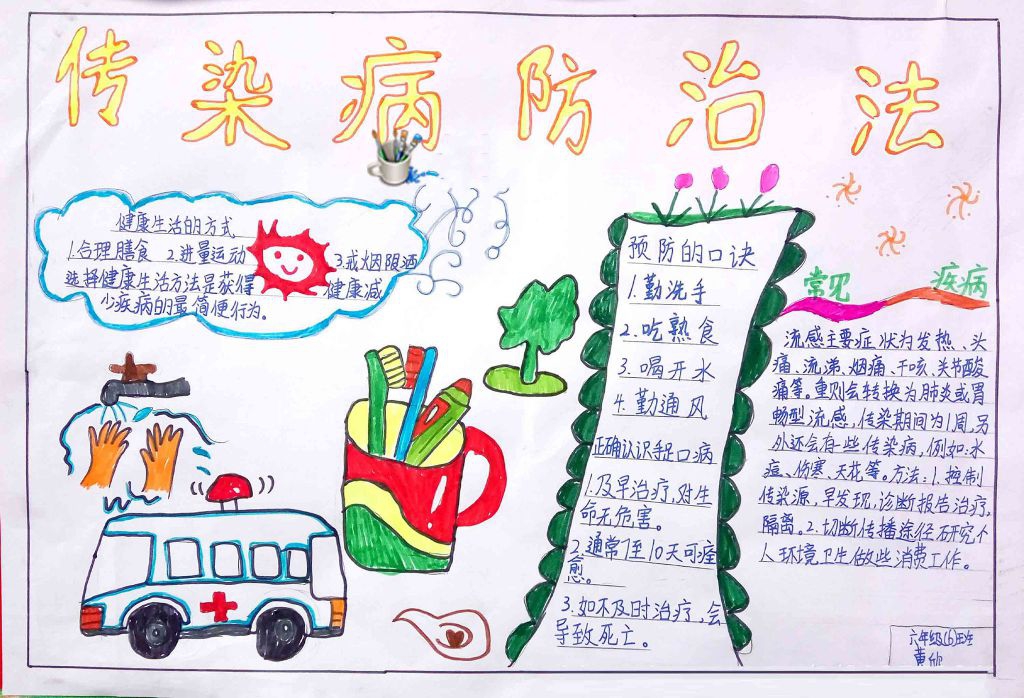 传染病防治法
健康生活的方式
1.合理膳食 2.进量运动 3.戒烟限酒
选择健康生活方法是获得健康减
少疾病的最简便行为。
预防的口诀
1.勤洗手
2.吃熟食
3.喝开水
4.勤通风
正确认识手足口病
1.及早治疗,对生
命无危害。
2.通常7至10天可痊
愈。
3.如不及时治疗,会
导致死亡。
常见 疾病
流感主要症状为发热、头
痛、流涕、烟痛、干咳、关节酸
痛等。重则会转换为肺炎或胃
肠型流感,传染期间为1周,另
外还会存些传染病,例如:水
痘、伤寒、天花等。方法:1.控制
传染源,早发现,诊断报告治疗,
隔离。2.切断传播途径研究个
人环境卫生做些消费工作。
六年级(6)班
黄